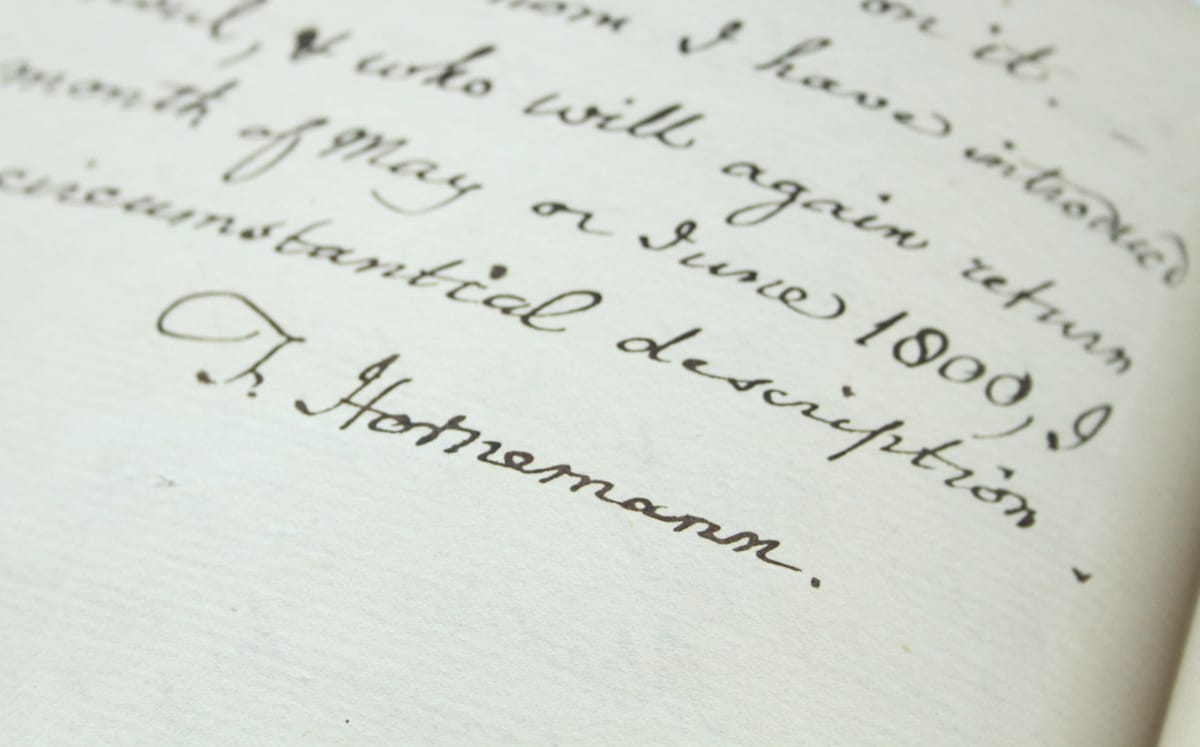 on it. –
I have introduced
, & who will again return
month of May or June 1800, I
circumstantial description.
F. Hornemann.